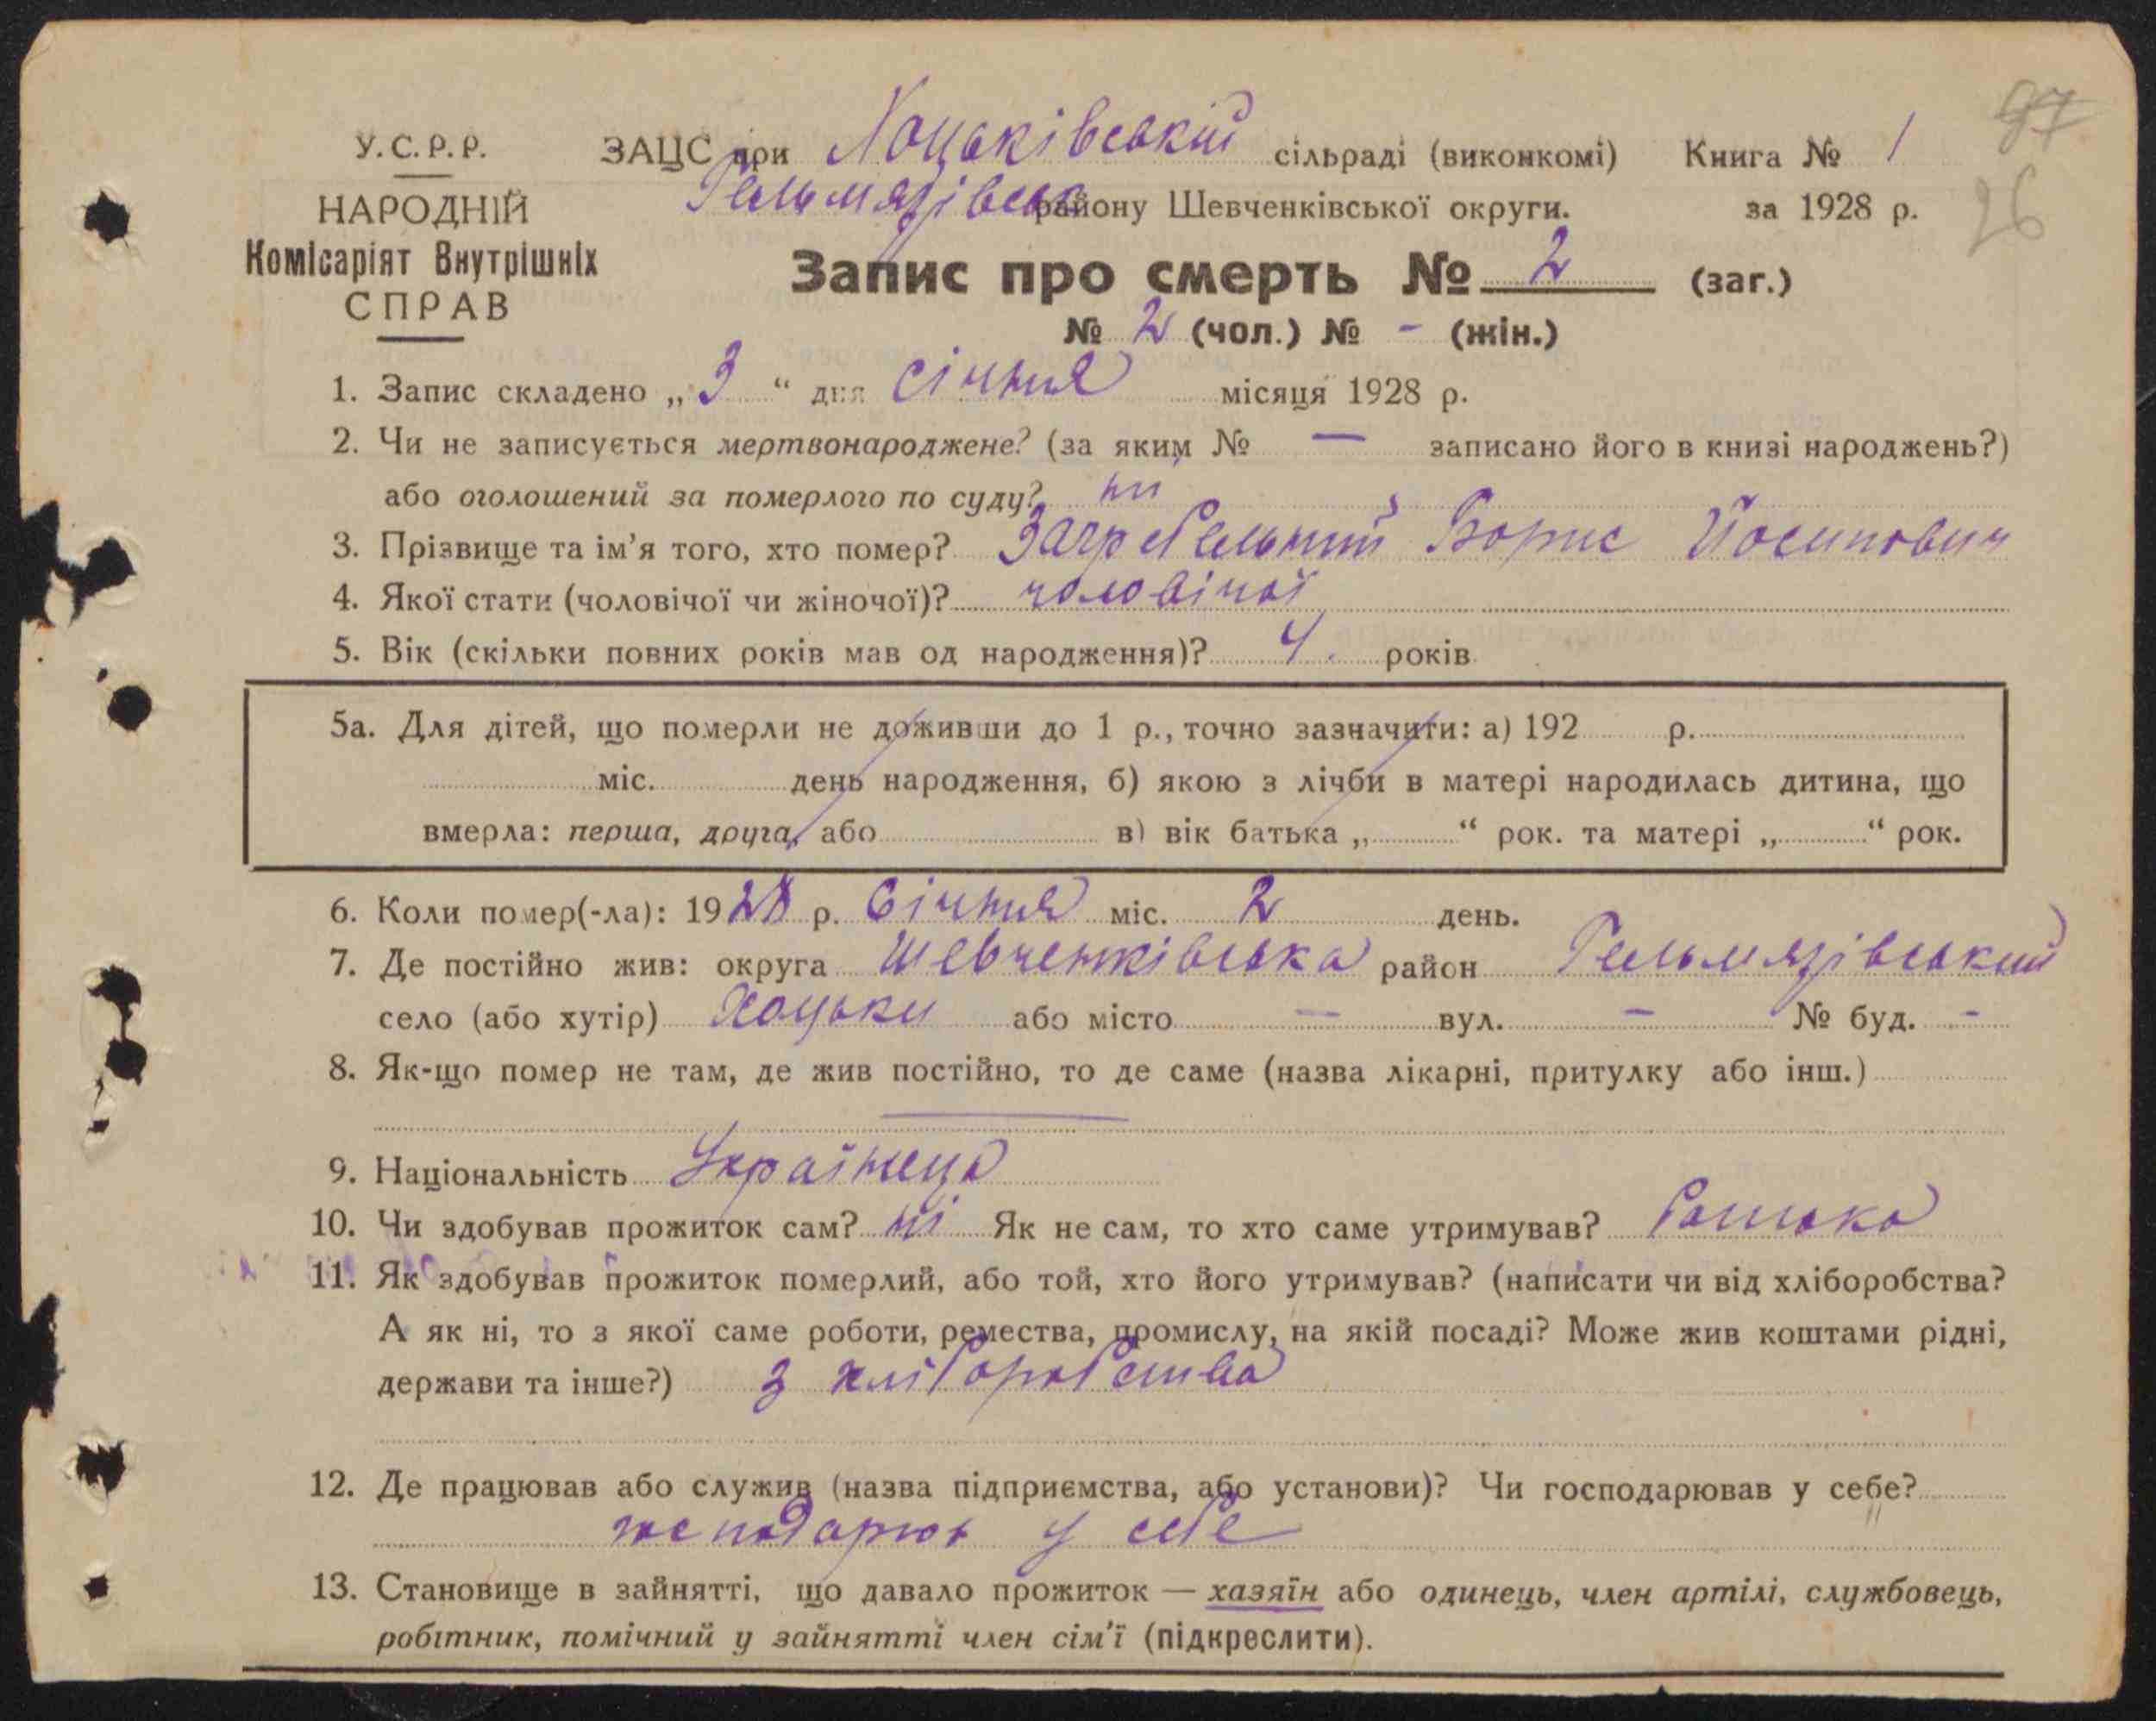 97
26
У.С.Р.Р.
НАРОДНІЙ
Комісаріят Внутрішніх
СПРАВ
ЗАЦС при Хоцьківській сільраді (виконкомі) Книга № 1
Гельмязівськ району Шевченківської округи. за 1928 р.
Запис про смерть № 2 (заг.)
№ 2 (чол.) № - (жін.)
1. Запис складено „3“ дня січння місяця 1928 р.
2. Чи не записується мертвонароджене? (за яким № — записано його в книзі народжень?)
або оголошений за померлого по суду? ні
3. Прізвище та ім'я того, хто помер? Загребельний Борис Йосипович
4. Якої стати (чоловічої чи жіночої)? чоловічої
5. Вік (скільки повних років мав од народження)? 4. років
5а. Для дітей, що померли не доживши до 1 р., точно зазначити: а) 192 р.
міс. день народження, б) якою з лічби в матері народилась дитина, що
вмерла: перша, друга, або в) вік батька „ “ рок. та матері „ “ рок.
6. Коли помер(-ла): 1928 р. Січння міс. 2 день.
7. Де постійно жив: округа Шевченківська район Гельмязівський
село (або хутір) Хоцьки або місто — вул. — № буд. -
8. Як-що помер не там, де жив постійно, то де саме (назва лікарні, притулку або інш.)
9. Національність Українець
10. Чи здобував прожиток сам? ні Як не сам, то хто саме утримував? батько
11. Як здобував прожиток померлий, або той, хто його утримував? (написати чи від хліборобства?
А як ні, то з якої саме роботи, ремества, промислу, на якій посаді? Може жив коштами рідні,
держави та інше?) з хліборобства
12. Де працював або служив (назва підприємства, або установи)? Чи господарював у себе?
господарюв у себе
13. Становище в зайнятті, що давало прожиток — хазяїн або одинець, член артілі, службовець,
робітник, помічний у зайнятті член сім'ї (підкреслити).